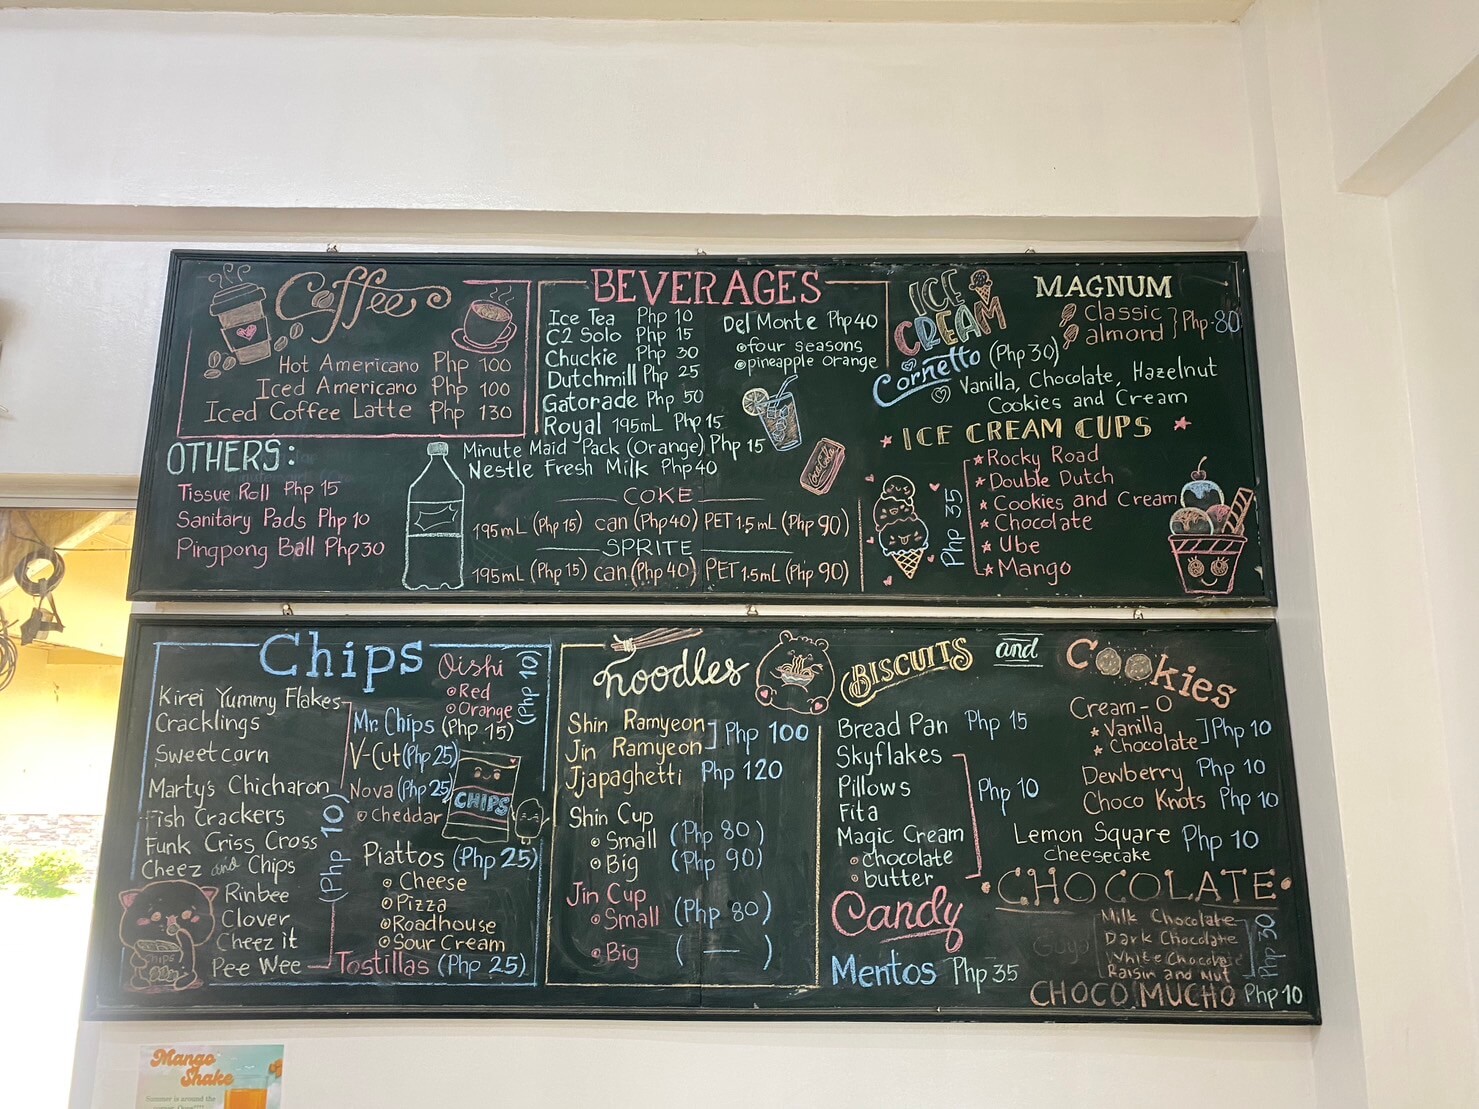 Coffee
Hot Americano Php 100
Iced Americano Php 100
Iced Coffee Latte Php 130
OTHERS:
Tissue Roll Php 15
Sanitary Pads Php 10
Pingpong Ball Php 30
BEVERAGES
Ice Tea Php 10
C2 Solo Php 15
Chuckie Php 30
Dutchmill Php 25
Gatorade Php 50
Royal 195mL Php 15
Minute Maid Pack (Orange) Php 15
Nestle Fresh Milk Php 40
Del Monte Php 40
four seasons
pineapple orange
COKE
195mL (Php 15) can (Php 40) PET 1.5mL (Php 90)
SPRITE
195mL (Php 15) can (Php 40) PET 1.5mL (Php 90)
ICE
CREAM
Cornetto (Php 30)
Vanilla, Chocolate, Hazelnut
Cookies and Cream
MAGNUM
Classic
almond
Php 80
ICE CREAM CUPS
Rocky Road
Double Dutch
Cookies and Cream
Chocolate
Ube
Mango
Php 35
Chips
Kirei Yummy Flakes
Cracklings
Sweetcorn
Marty's Chicharon
Fish Crackers
Funk Criss Cross
Cheez and Chips
Rinbee
Clover
Cheez it
Pee Wee
(Php 10)
Oishi
Red
Orange
(Php 10)
Mr. Chips (Php 15)
V-Cut (Php 25)
Nova (Php 25)
Cheddar
CHIPS
Piattos (Php 25)
Cheese
Pizza
Roadhouse
Sour Cream
Tostillas (Php 25)
CHIPS
noodles
Shin Ramyeon
Jin Ramyeon
Php 100
Jjapaghetti Php 120
Shin Cup
Small (Php 80)
Big (Php 90)
Jin Cup
Small (Php 80)
Big ( — )
BISCUITS and Cookies
Bread Pan Php 15
Skyflakes
Pillows
Fita
Magic Cream
chocolate
butter
Php 10
Cream-O
Vanilla
Chocolate
Php 10
Dewberry Php 10
Choco Knots Php 10
Lemon Square Php 10
Cheesecake
Candy
Mentos Php 35
CHOCOLATE
Goya
Milk Chocolate
Dark Chocolate
White Chocolate
Raisin and Nut
Php 30
CHOCO MUCHO Php 10
Mango
Shake
Summer is around the